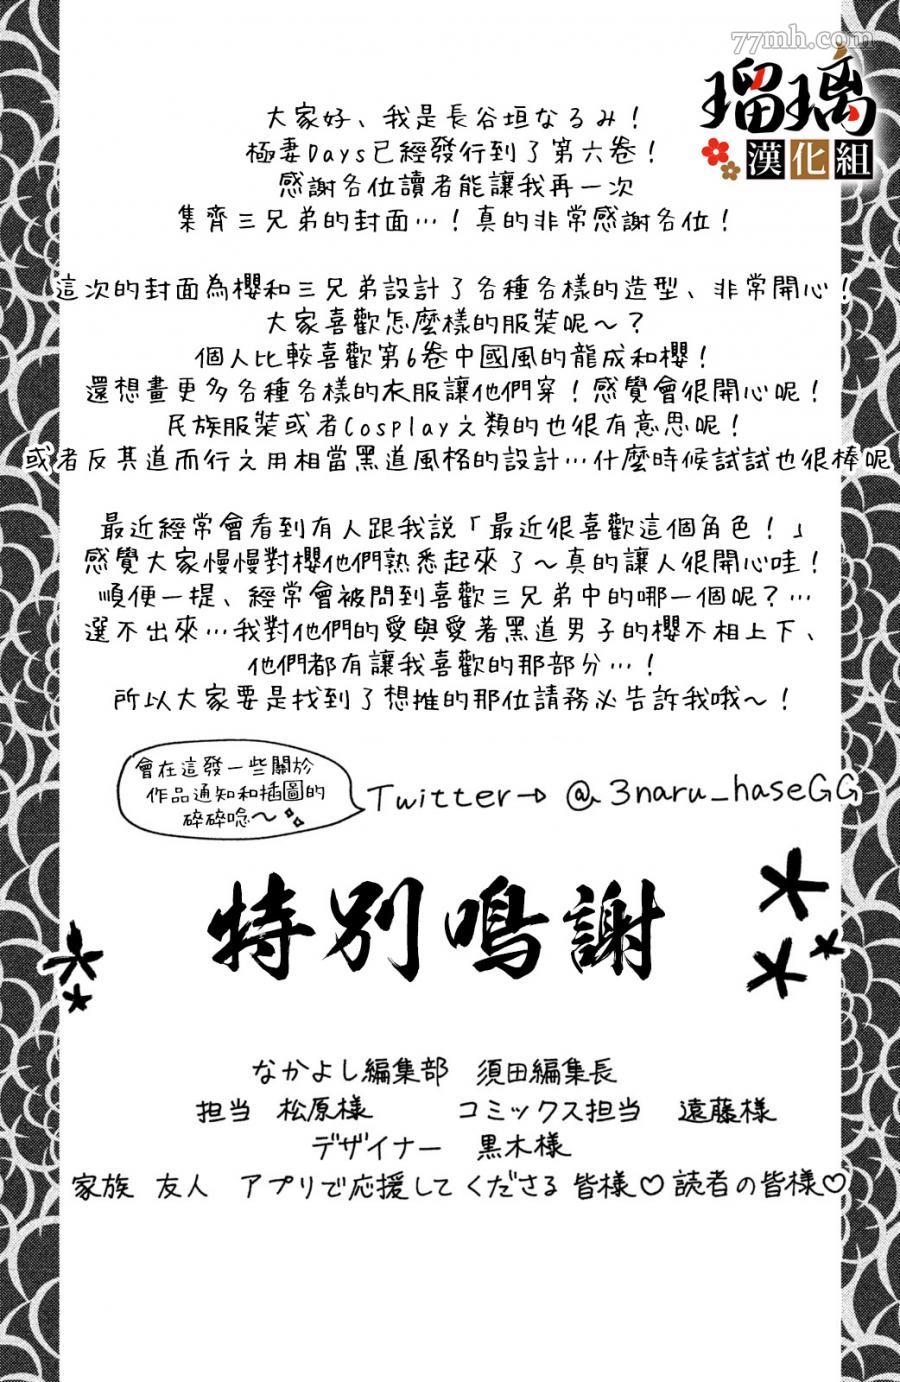 77mh.com
瑠璃
漢化組
大家好、我是長谷垣なるみ！
極妻Days已經發行到了第六卷！
感謝各位讀者能讓我再一次
集齊三兄弟的封面…！真的非常感謝各位！
這次的封面為櫻和三兄弟設計了各種各樣的造型、非常開心！
大家喜歡怎麼樣的服裝呢～？
個人比較喜歡第6卷中國風的龍成和櫻！
還想畫更多各種各樣的衣服讓他們穿！感覺會很開心呢！
民族服裝或者Cosplay之類的也很有意思呢！
或者反其道而行之用相當黑道風格的設計…什麼時候試試也很棒呢
最近經常會看到有人跟我說「最近很喜歡這個角色！」
感覺大家慢慢對櫻他們熟悉起來了～真的讓人很開心哇！
順便一提、經常會被問到喜歡三兄弟中的哪一個呢？…
選不出來…我對他們的愛與愛著黑道男子的櫻不相上下、
他們都有讓我喜歡的那部分…！
所以大家要是找到了想推的那位請務必告訴我哦～！
會在這發一些關於
作品通知和插圖的
碎碎唸～
Twitter→ @3naru_haseGG
特別鳴謝
なかよし編集部 須田編集長
担当 松原様 コミックス担当 遠藤様
デザイナー 黒木様
家族 友人 アプリで応援してくださる皆様♡読者の皆様♡